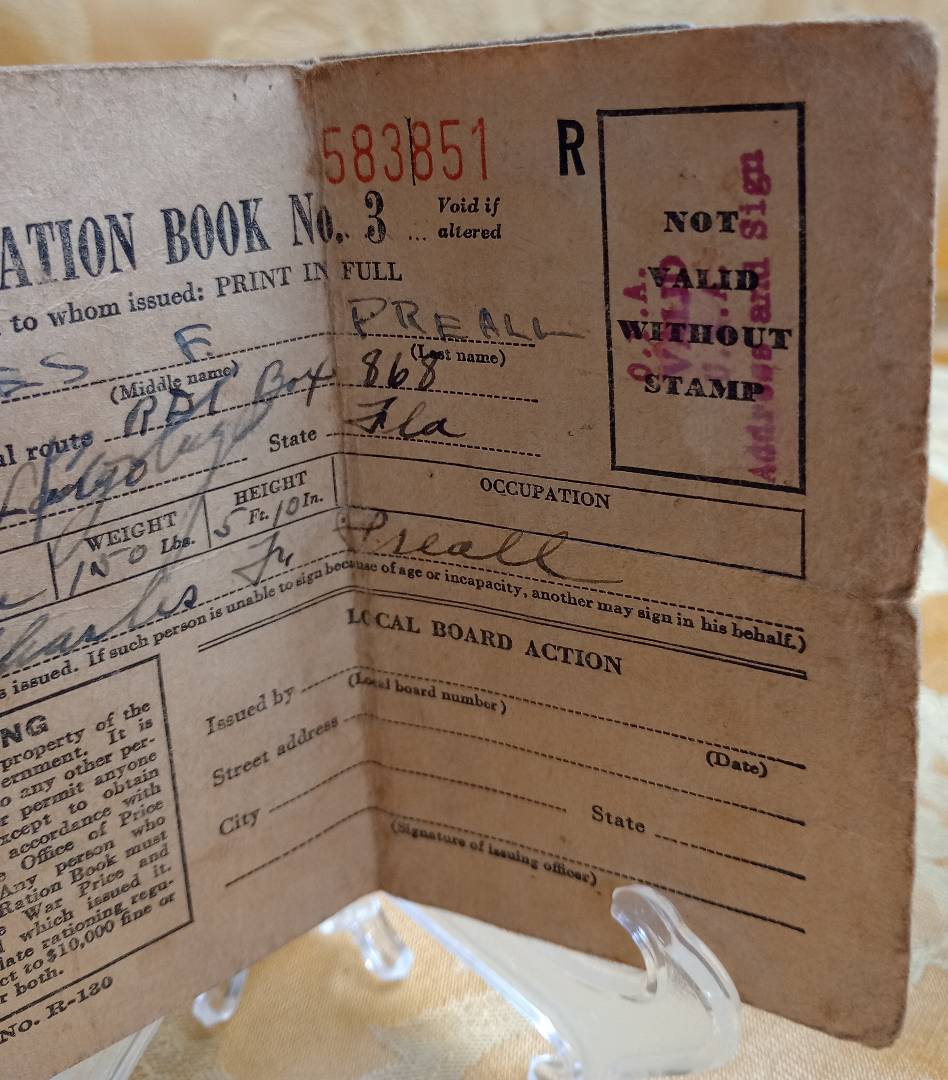 583851 R
ATION BOOK No. 3 ... Void if altered
to whom issued: PRINT IN FULL
ES F. PREALL
(Middle name) (Last name)
al route RD1 Box 868
Largo State Fla
WEIGHT 150 Lbs. HEIGHT 5 Ft. 10 In. OCCUPATION
Charles Fr. Preall
s issued. If such person is unable to sign because of age or incapacity, another may sign in his behalf.)
NOT
VALID
WITHOUT
STAMP
O.P.A.
VALID
Address and Sign
LOCAL BOARD ACTION
Issued by
(Local board number) (Date)
Street address
City State
(Signature of issuing officer)
NG
property of the
ernment. It is
o any other per-
r permit anyone
xcept to obtain
accordance with
e Office of Price
Any person who
Ration Book must
e War Price and
d which issued it.
late rationing regu-
ct to $10,000 fine or
r both.
NO. R-130